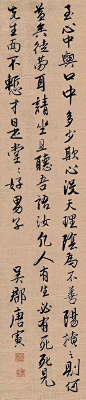 玉心中與口中多少欺心没天理陰為不善陽掩之則何
益矣徒勞耳請坐且聽吾語汝凡人有生必有死死見
先生面不慙才是堂堂好男子
吳郡唐寅